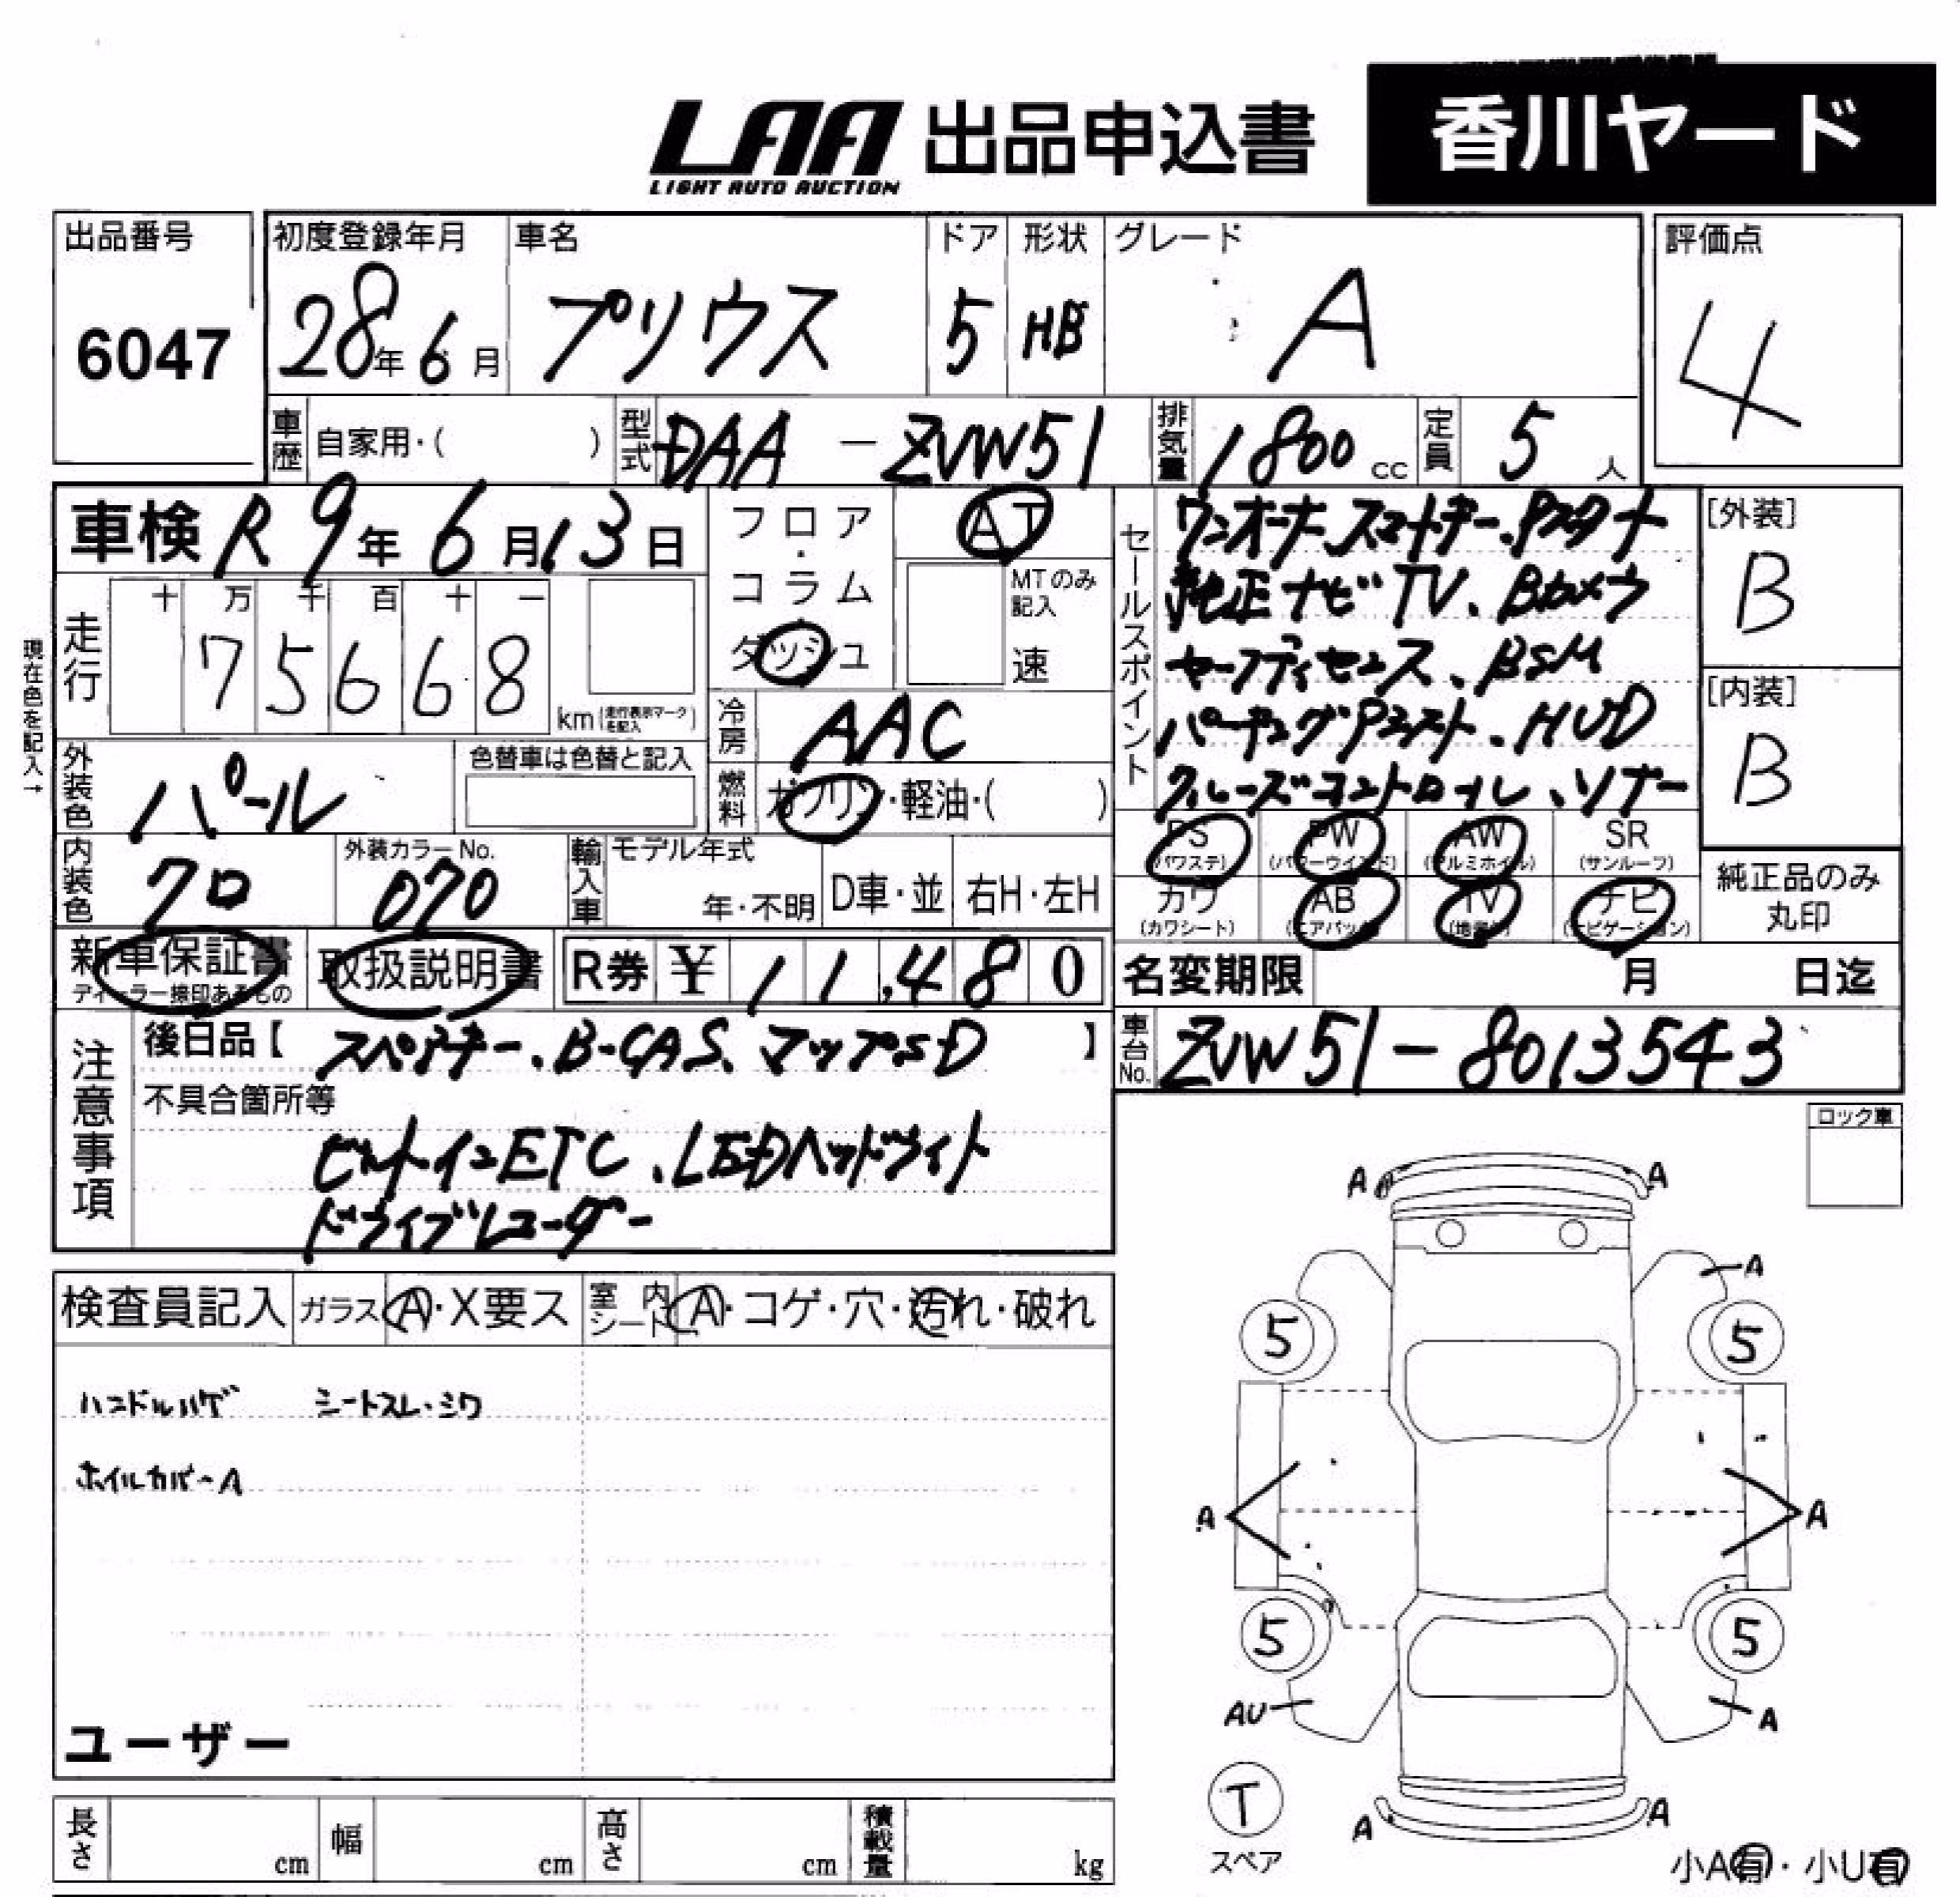 LAA 出品申込書 香川ヤード
LIGHT AUTO AUCTION
出品番号 初度登録年月 車名 ドア 形状 グレード 評価点
6047 28年6月 プリウス 5 HB A 4
車歴 自家用・( ) 型式 DAA-ZVW51 排気量 1800cc 定員 5人
車検 R9年6月13日
フロア・コラム・ダッシュ
AT
MTのみ記入
速
セールスポイント
ワンオーナー、スマートキー、Pスタート
純正ナビTV、Bカメラ
セーフティセンス、BSM
パーキングPアシスト、HUD
クルーズコントロール、ソナー
[外装]
B
[内装]
B
現在色を記入→
走行 十 万 千 百 十 一
75668 km (走行表示マークを記入)
冷房 AAC
外装色 パール 色替車は色替と記入
燃料 ガソリン・軽油・( )
内装色 クロ 外装カラーNo. 070
輸入車 モデル年式 年・不明 D車・並 右H・左H
PS (パワステ) PW (パワーウインド) AW (アルミホイル) SR (サンルーフ)
カワ (カワシート) AB (エアバック) TV (地デジ) ナビ (ナビゲーション)
純正品のみ丸印
新車保証書 ディーラー捺印あるもの 取扱説明書 R券 ¥11,480
名変期限 月 日迄
注意事項
後日品【スペアキー、B-CAS、マップSD】
車台No. ZVW51-8013543
不具合箇所等
ビルトインETC、LEDヘッドライト
ドライブレコーダー
ロック車
A A
A
検査員記入 ガラス A・X要ス 室内シート A・コゲ・穴・汚れ・破れ
5 5
ハンドルハゲ シートスレ・シワ
ホイルカバーA
A A
5 5
AU A
ユーザー
T
スペア
A A
長さ cm 幅 cm 高さ cm 積載量 kg
小A有・小U有